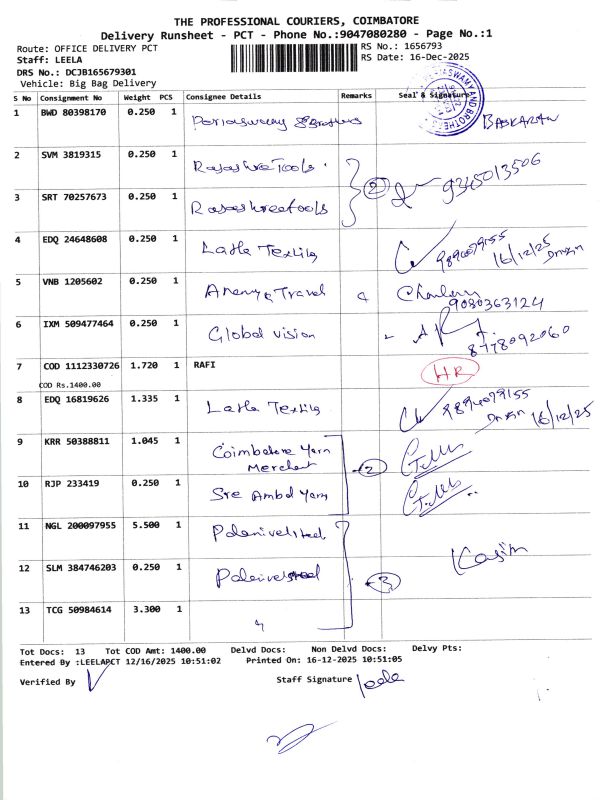 THE PROFESSIONAL COURIERS, COIMBATORE
Delivery Runsheet - PCT - Phone No.:9047080280 - Page No.:1
Route: OFFICE DELIVERY PCT
RS No.: 1656793
Staff: LEELA
RS Date: 16-Dec-2025
DRS No.: DCJB165679301
Vehicle: Big Bag Delivery
S No Consignment No Weight PCS Consignee Details Remarks Seal & Signature
1 BWD 80398170 0.250 1 Periaswamy & Brothers BASKARAN
2 SVM 3819315 0.250 1 Rajashree Tools
2 9345013506
3 SRT 70257673 0.250 1 Rajashreetools
4 EDQ 24648608 0.250 1 Latha Textiles 9894079155 16/12/25
5 VNB 1205602 0.250 1 Travel 9080363124
6 IXM 509477464 0.250 1 Global vision 8778092060
7 COD 1112330726 1.720 1 RAFI HR
COD Rs.1400.00
8 EDQ 16819626 1.335 1 Latha Textiles 9894079155 16/12/25
9 KRR 50388811 1.045 1 Coimbatore Yarn
Merchant 2
10 RJP 233419 0.250 1 Sre Ambal Yarn
11 NGL 200097955 5.500 1 Palanivel steel
Kasim
12 SLM 384746203 0.250 1 Palanivel steel 3
13 TCG 50984614 3.300 1 "
Tot Docs: 13 Tot COD Amt: 1400.00 Delvd Docs: Non Delvd Docs: Delvy Pts:
Entered By :LEELAPCT 12/16/2025 10:51:02 Printed On: 16-12-2025 10:51:05
Verified By Staff Signature leela